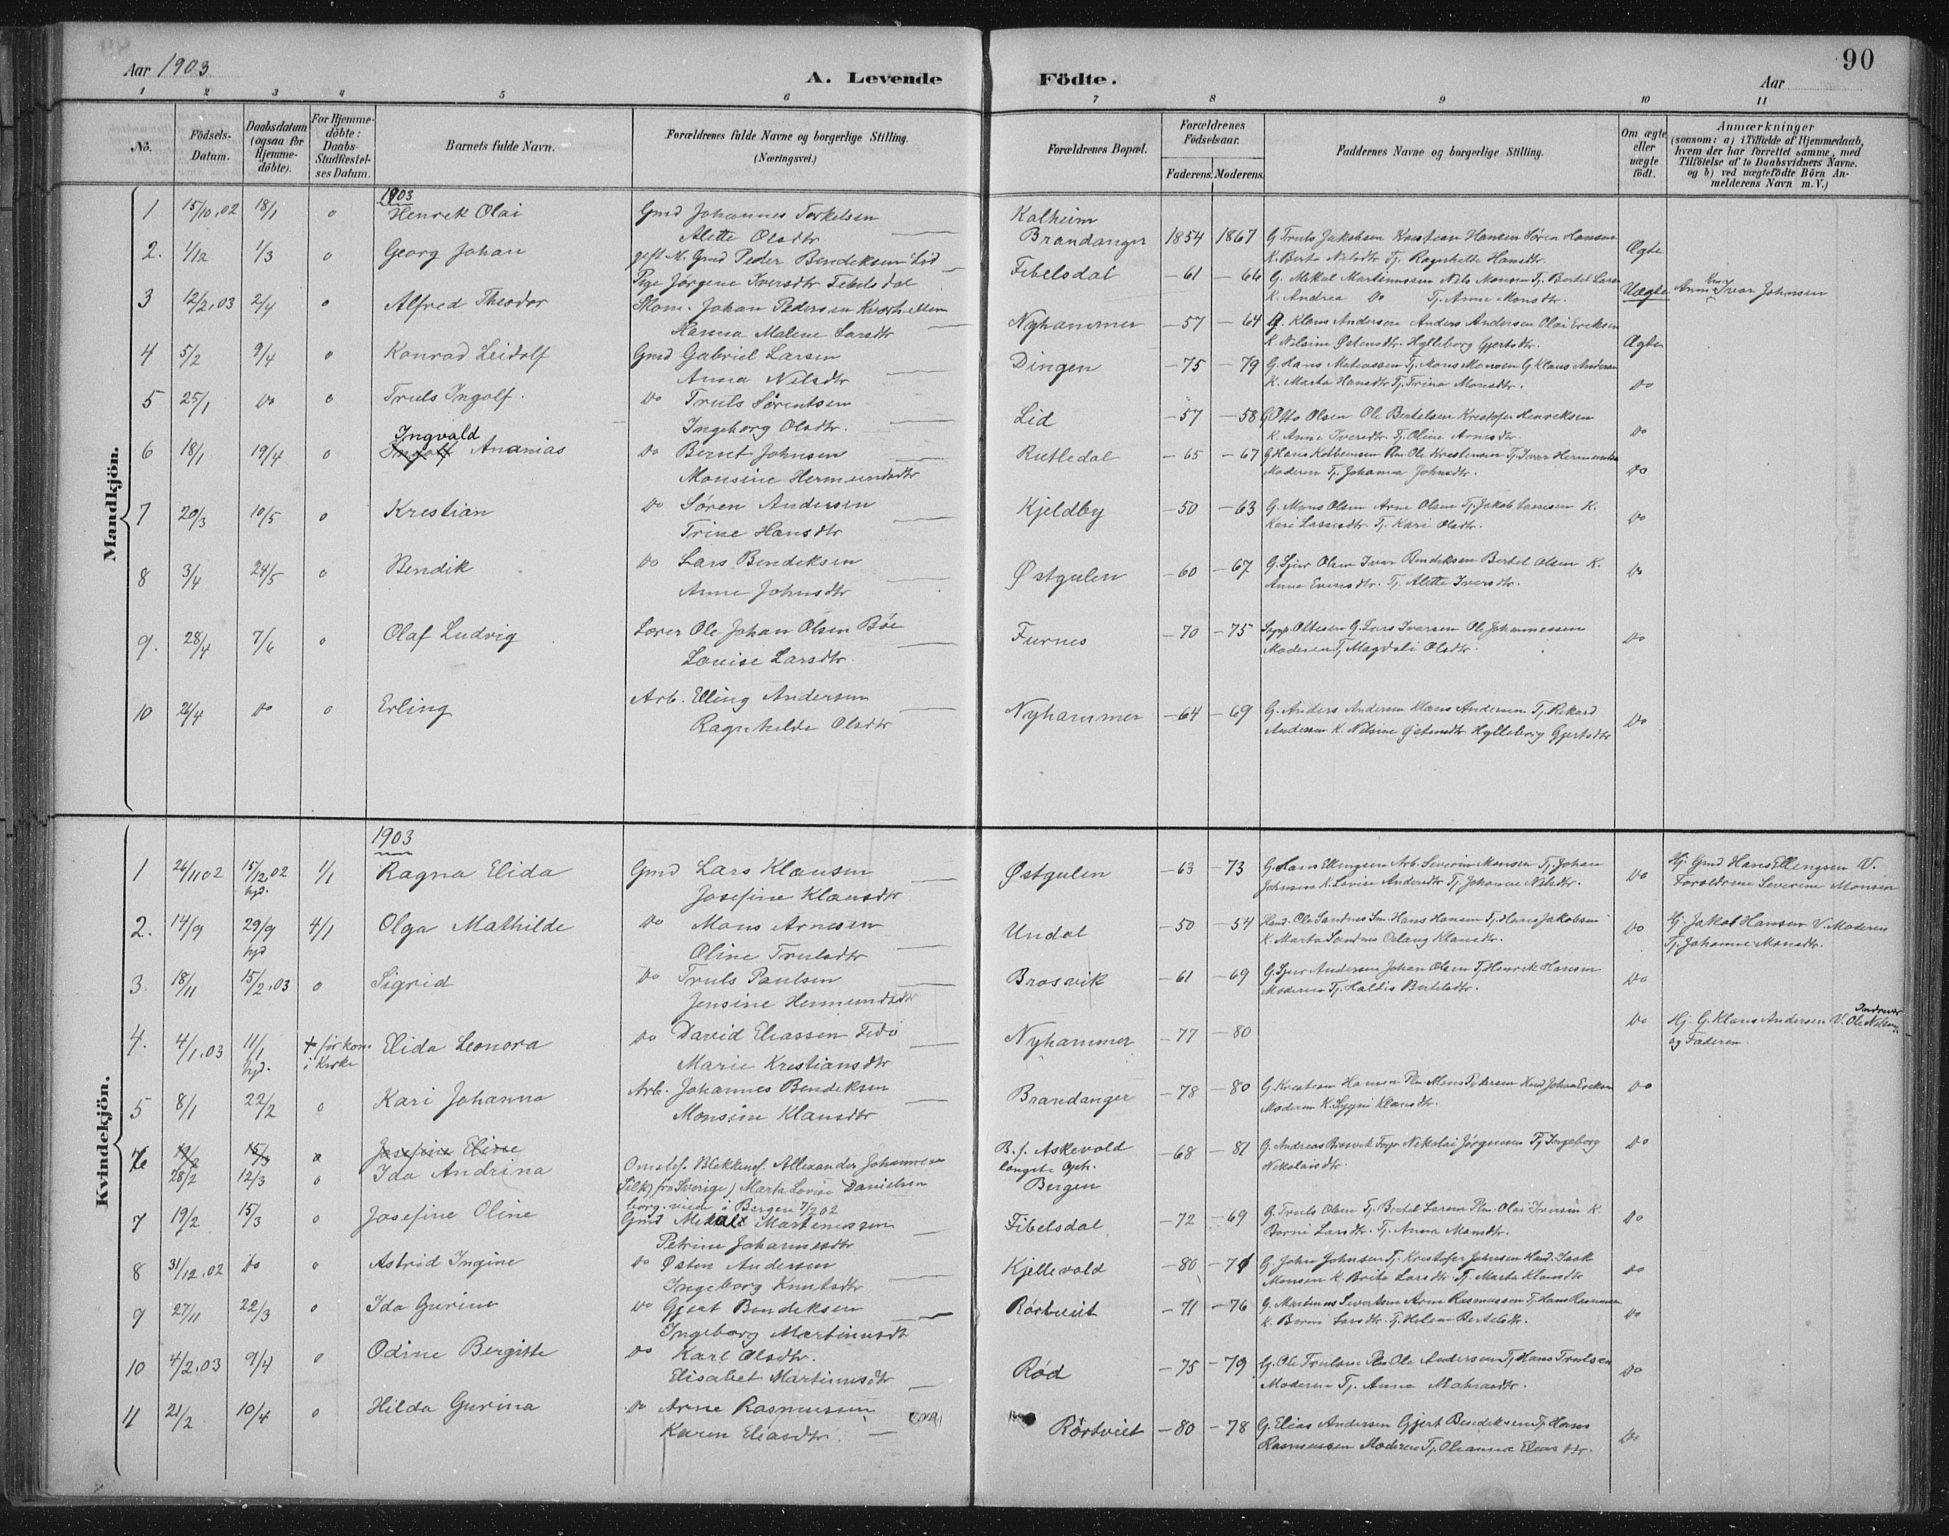 90
Aar 1903
A. Levende Födte.
Aar
1 2 3 4 5 6 7 8 9 10 11
No.
Födsels-Datum.
Daabsdatum (ogsaa for Hjemme-döbte).
For Hjemme-döbte: Daabs-Stadfæstel-ses Datum.
Barnets fulde Navn.
Forældrenes fulde Navne og borgerlige Stilling.
(Næringsvei.)
Forældrenes Bopæl.
Forældrenes Födselsaar.
Faderens. Moderens.
Faddernes Navne og borgerlige Stilling.
Om ægte eller uægte födt.
Anmærkninger
(saasom: a) i Tilfælde af Hjemmedaab,
hvem der har forrettet samme, med
Tilföielse af to Daabsvidners Navne.
og b) ved uægtefödte Börn An-
melderens Navn m. V.)
Mandkjön.
1903
1 15/10.02 18/1 o Henrik Olai Gmd Johannes Torkelsen
Alette Olsdtr Kalheim
Brandanger 1854 1867 G Truls Jakobsen Kristian Hansen Søren Hansen
K. Berta Nilsdtr Tj. Ragnhilde Hansdtr. Ægte
2. 1/12 1/3 o Georg Johan gift M. Gmd Peder Bendiksen Lid
Pige Jørgine Iversdtr Fibelsdal Fibelsdal -61 -66 G. Mikal Martinussen Nils Monsen Tj. Bertel Larsen
K. Andrea Do Tj. Anne Monsdtr. Uægte Ivar Johnsen
3 12/2.03 2/4 o Alfred Theodor Skom. Johan Pedersen
Hanna Malene Larsdtr Nyhammer -57 -64 G. Klaus Andersen Anders Andersen Olai Eriksen
K Nilsine Østensdtr. Hylleborg Gjertsdtr. Ægte
4 5/2 9/4 o Konrad Leidolf Gmd Gabriel Larsen
Anna Nilsdtr Dingen -75 -79 G. Hans Matiassen Tj. Mons Monsen G. Klaus Andersen
K. Marta Hansdtr Tj. Trina Monsdtr. Do
5 25/1 Do o Truls Ingolf. Do Truls Sørentsen
Ingeborg Olsdtr. Lid -57 -58 G Otto Olsen Ole Bertelsen Kristofer Henriksen
K. Anne Iversdtr Tj. Oline Arnesdtr. Do
6 18/1 19/4 o Ingvald
Ingolf Ananias Do Bernt Johnsen
Monsine Hermundsdtr Rutledal -65 -67 G Hans Ole Kristensen Tj. Ivar Hermundsen
Moderen Tj. Johanna Johnsdtr. Do
7 20/3 10/5 o Kristian Do Søren Andersen
Trine Hansdtr Kjeldby -50 -63 G. Mons Olsen Arne Olsen Tj. Jakob K.
Kari Lassesdtr Tj. Kari Olsdtr. Do
8 3/4 24/5 o Bendik Do Lars Bendiksen
Anne Johnsdtr Østgulen -60 -67 G. Sjur Olsen Ivar Bendiksen Bertel Olsen K.
Anna Tj. Alette Iversdtr. Do
9. 28/4 7/6 o Olaf Ludvig Lærer Ole Johan Olsen Böe
Louise Larsdtr. Furnes -70 -75 G. Lars Ivarsen Ole Johannessen
Moderen Tj. Magdeli Olsdtr. Do
10 26/4 Do o Erling Arb. Elling Andersen
Ragnhilde Olsdtr Nyhammer -64 -69 G. Anders Andersen Klaus Andersen Tj. Rikard
Andersen K. Nilsine Østensdtr Hylleborg Gjertsdtr Do
Kvindekjön.
1903
1 26/11 02 15/12.02
hjd. 1/1 Ragna Elida Gmd Lars Klausen
Josefine Klausdtr Østgulen -63 -73 G. Hans Ellingsen Arb. Severin Monsen Tj. Johan
Johnsen K. Lovise Andersdtr Tj. Johanne Nilsdtr. Do Hj. Gmd Hans Ellingsen V.
Forældrene Severine Monsen
2. 14/9 29/9
hjd 4/1 Olga Mathilde Do Mons Arnesen
Oline Trulsdtr Undal -50 -54 Hand. Ole Sandnes Sm. Hans Hansen Tj. Hans Jakobsen
K. Marta Sandnes Oslaug Klausdtr. Do Hj. Jakob Hansen V. Moderen
Tj. Johanne Monsdtr.
3. 18/11 15/2.03 o Sigrid Do Truls Paulsen
Jensine Hermundsdtr Brosvik -61 -69 G. Sjur Andersen Johan Olsen Tj. Henrik Hansen
Moderen Tj. Haldis Bertelsdtr. Do
4. 4/1.03 11/1
hjd. † før kom
i Kirke Elida Leonora Do David Eliassen
Marie Kristiansdtr Nyhammer -77 -80 Do Hj. G. Klaus Andersen V. Ole Nilsen
og Faderen.
5 8/1 22/2 o Kari Johanna Arb. Johannes Bendiksen
Monsine Klausdtr Brandanger -78 -80 G. Kristian Hansen Pm. Mons Pedersen Johan Eriksen
Moderen K. Klausdtr. Do
6 19/2 15/3 o Josefine Oline
28/2 12/3 o Ida Andrina Omstr. Blikkensl. Allexander Johannesen
Silk) fra Sverige) Marta Lovise Danielsen
borg. viede i Bergen 7/2 02 B. f. Askevold
Bergen -68 -81 G. Andreas Brosvik Nikolai Jørgensen Tj. Ingeborg
Nikolaisdtr. Do
7 19/2 15/3 o Josefine Oline Gmd Mikal Martinussen
Petrine Johannesdtr Fibelsdal -72 -69 G. Truls Olsen Tj. Bertel Larsen Pm. Olai Iversen K.
Berni Larsdtr. Tj. Anna Monsdtr. Do
8 31/12.02 Do o Astrid Ingine Do Østen Andersen
Ingeborg Knutsdtr Kjellevold -80 G. John Johnsen Tj. Kristofer Johnsen Hand. Isak
Monsen K. Brita Larsdtr Tj. Marta Klausdtr Do
9 27/11 22/3 o Ida Gurine Do Gjert Bendiksen
Ingeborg Martinusdtr Rørtveit -71 -76 G. Martinus Sivertsen Arne Rasmussen Tj. Hans Rasmussen
K. Berni Larsdtr. Tj. Helene Bertelsdtr. Do
10 4/2.03 9/4 o Odine Bergitte Do Karl Olsdtr.
Elisabet Martinusdtr Rød -75 -79 G. Ole Trulsen Pm Ole Andersen Tj Hans Trulsen
Moderen Tj. Anna Do
11 21/2 10/4 o Hilda Gurina Do Arne Rasmussen
Karen Eliasdtr. Rørtveit -80 -78 G. Elias Andersen Gjert Bendiksen Tj. Hans
Rasmussen Moderen Tj. Oleanna Eliasdtr. Do